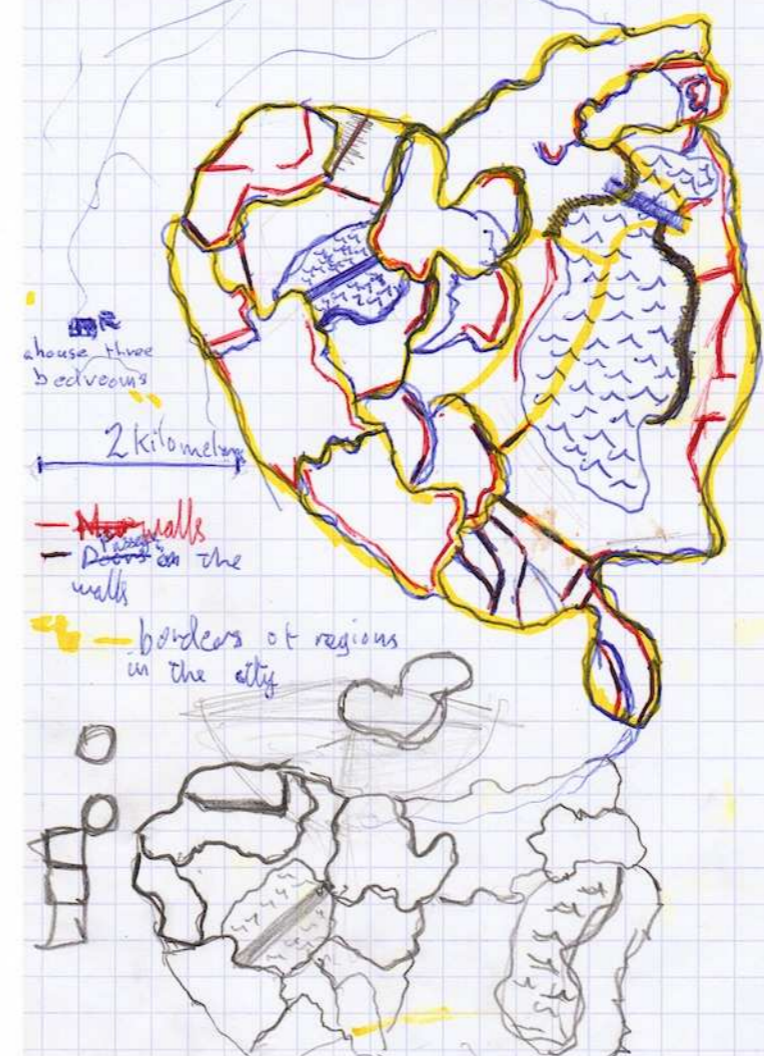 a house three
bedrooms
2 kilometers
walls
Passages on the
walls
borders of regions
in the city